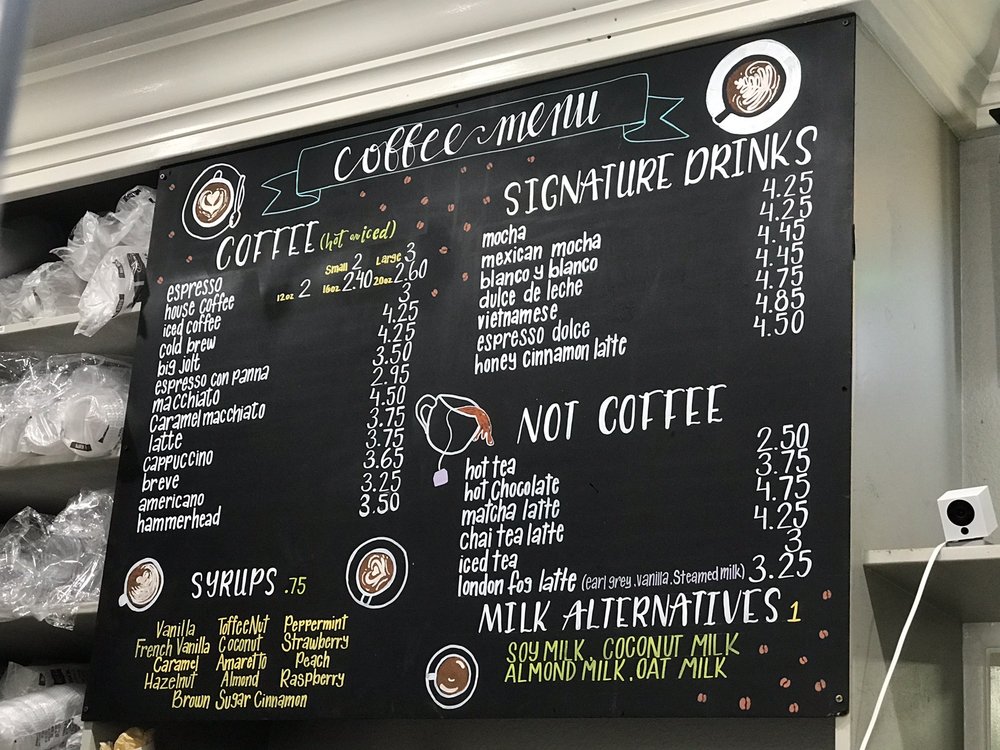 coffee menu
COFFEE (hot or iced)
espresso Small 2 Large 3
house coffee 12oz 2 16oz 2.40 20oz 2.60
iced coffee 3
cold brew 4.25
big jolt 4.25
espresso con panna 3.50
macchiato 2.95
Caramel macchiato 4.50
latte 3.75
cappuccino 3.75
breve 3.65
americano 3.25
hammerhead 3.50
SYRUPS .75
Vanilla ToffeeNut Peppermint
French Vanilla Coconut Strawberry
Caramel Amaretto Peach
Hazelnut Almond Raspberry
Brown Sugar Cinnamon
SIGNATURE DRINKS
mocha 4.25
mexican mocha 4.25
blanco y blanco 4.45
dulce de leche 4.45
vietnamese 4.75
espresso dolce 4.85
honey cinnamon latte 4.50
NOT COFFEE
hot tea 2.50
hot chocolate 3.75
matcha latte 4.75
chai tea latte 4.25
iced tea 3
london fog latte (earl grey, vanilla, steamed milk) 3.25
MILK ALTERNATIVES 1
SOY MILK, COCONUT MILK
ALMOND MILK, OAT MILK